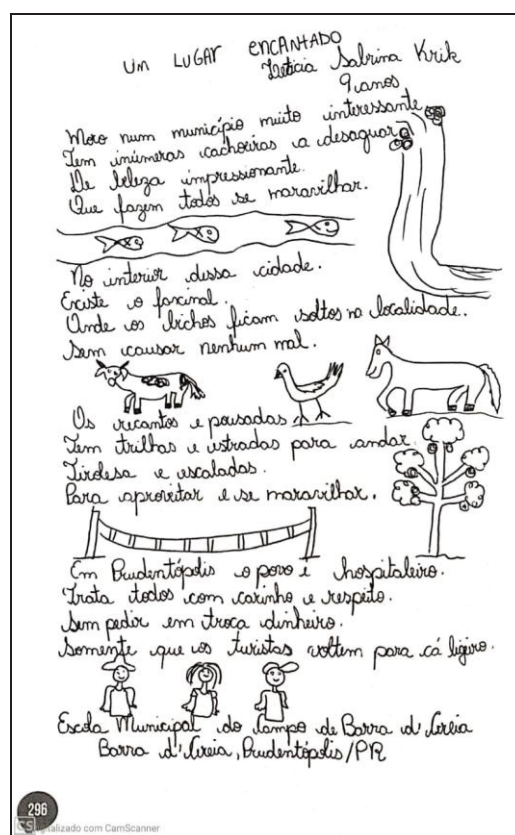 UM LUGAR ENCANTADO
Leticia Sabrina Krik
9 anos
Moro num município muito interessante
Tem inúmeras cachoeiras a desaguar
De beleza impressionante.
Que fazem todos se maravilhar.
No interior dessa cidade.
Existe o faxcinal.
Onde os bichos ficam soltos na localidade.
Sem causar nenhum mal.
Os recantos e pousadas
Tem trilhas e estradas para andar.
Tirolesa e escaladas.
Para aproveitar e se maravilhar.
Em Prudentópolis o povo é hospitaleiro.
Trata todos com carinho e respeito.
Sem pedir em troca dinheiro.
Somente que os turistas voltem para cá ligeiro.
Escola Municipal do Campo de Barra d'Areia
Barra d'Areia, Prudentópolis/PR
296
CS Digitalizado com CamScanner